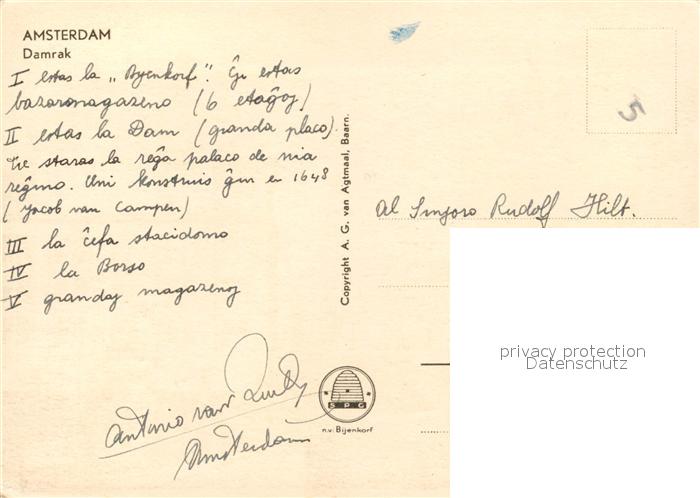 AMSTERDAM
Damrak
I estas la „Byenkorf". Ĝi estas
bazaromagazeno (6 etaĝoj)
II estas la Dam (granda placo).
Tie staras la reĝa palaco de nia
reĝino. Oni konstruis ĝin en 1648
(Jacob van Campen)
III la ĉefa stacidomo
IV la Borso
V grandaj magazenoj
antonio van
Amsterdam
Copyright A. G. van Agtmaal, Baarn.
S P G
n.v. Bijenkorf
5
Al Sinjoro Rudolf Hilt.
privacy protection
Datenschutz